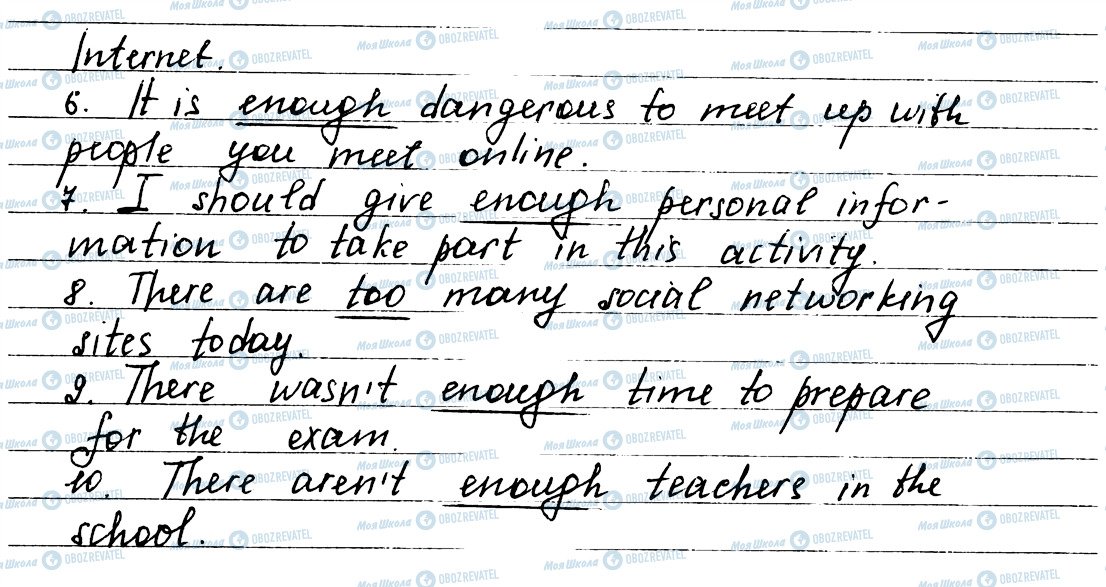 Internet.
6. It is enough dangerous to meet up with
people you meet online.
7. I should give enough personal infor-
mation to take part in this activity.
8. There are too many social networking
sites today.
9. There wasn't enough time to prepare
for the exam.
10. There aren't enough teachers in the
school.